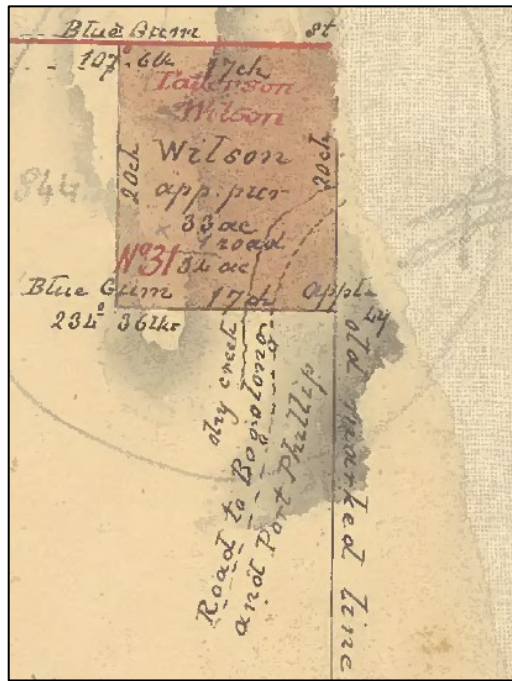 Blue Gum st
107° 6lk 17ch
Paterson
Wilson
Wilson
app. pur
20ch
20ch
844
33 ac
1 road
No 31 32 ac
Blue Gum 17ch apple
234° 36lks 44
dry creek
Road to Bogolong
and Port Phillip
old marked line